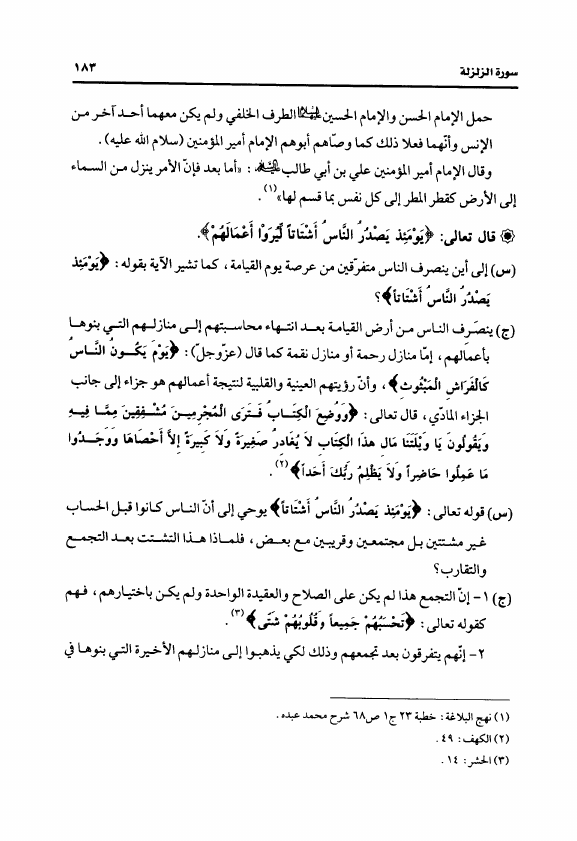 سورة الزلزلة
١٨٣
حمل الإمام الحسن والإمام الحسين الطرف الخلفي ولم يكن معهما أحد آخر من
الإنس وأنّهما فعلا ذلك كما وصّاهم أبوهم الإمام أمير المؤمنين (سلام الله عليه).
وقال الإمام أمير المؤمنين علي بن أبي طالب : «أما بعد فإنّ الأمر ينزل من السماء
إلى الأرض كقطر المطر إلى كل نفس بما قسم لها»(١).
قال تعالى: ﴿يَوْمَئِذ يَصْدُرُ النَّاسُ أَشْتَاتاً لِّيُرَوْا أَعْمَالَهُمْ﴾.
(س) إلى أين ينصرف الناس متفرّقين من عرصة يوم القيامة، كما تشير الآية بقوله: ﴿يَوْمَئِذ
يَصْدُرُ النَّاسُ أَشْتَاتاً﴾؟
(ج) ينصَرف الناس من أرض القيامة بعد انتهاء محاسبتهم إلى منازلهم التي بنوها
بأعمالهم، إمّا منازل رحمة أو منازل نقمة كما قال (عزّوجلّ): ﴿يَوْمَ يَكُونُ النَّاسُ
كَالْفَرَاشِ الْمَبْثُوثِ﴾، وأنّ رؤيتهم العينية والقلبية لنتيجة أعمالهم هو جزاء إلى جانب
الجزاء المادّي، قال تعالى: ﴿وَوُضِعَ الْكِتَابُ فَتَرَى الْمُجْرِمِينَ مُشْفِقِينَ مِمَّا فِيهِ
وَيَقُولُونَ يَا وَيْلَتَنَا مَالِ هذَا الْكِتَابِ لاَ يُغَادِرُ صَغِيرَةً وَلاَ كَبِيرَةً إِلاَّ أَحْصَاهَا وَوَجَدُوا
مَا عَمِلُوا حَاضِراً وَلاَ يَظْلِمُ رَبُّكَ أَحَداً﴾(٢).
(س) قوله تعالى: ﴿يَوْمَئِذ يَصْدُرُ النَّاسُ أَشْتَاتاً﴾ يوحي إلى أنّ الناس كانوا قبل الحساب
غير مشتتين بل مجتمعين وقريبين مع بعض، فلماذا هذا التشتت بعد التجمع
والتقارب؟
(ج) ١- إنّ التجمع هذا لم يكن على الصلاح والعقيدة الواحدة ولم يكن باختيارهم، فهم
كقوله تعالى: ﴿تَحْسَبُهُمْ جَمِيعاً وَقُلُوبُهُمْ شَتَّى﴾(٣).
٢- إنّهم يتفرقون بعد تجمعهم وذلك لكي يذهبوا إلى منازلهم الأخيرة التي بنوها في
(١) نهج البلاغة: خطبة ٢٣ ج١ ص٦٨ شرح محمد عبده.
(٢) الكهف: ٤٩.
(٣) الحشر: ١٤.